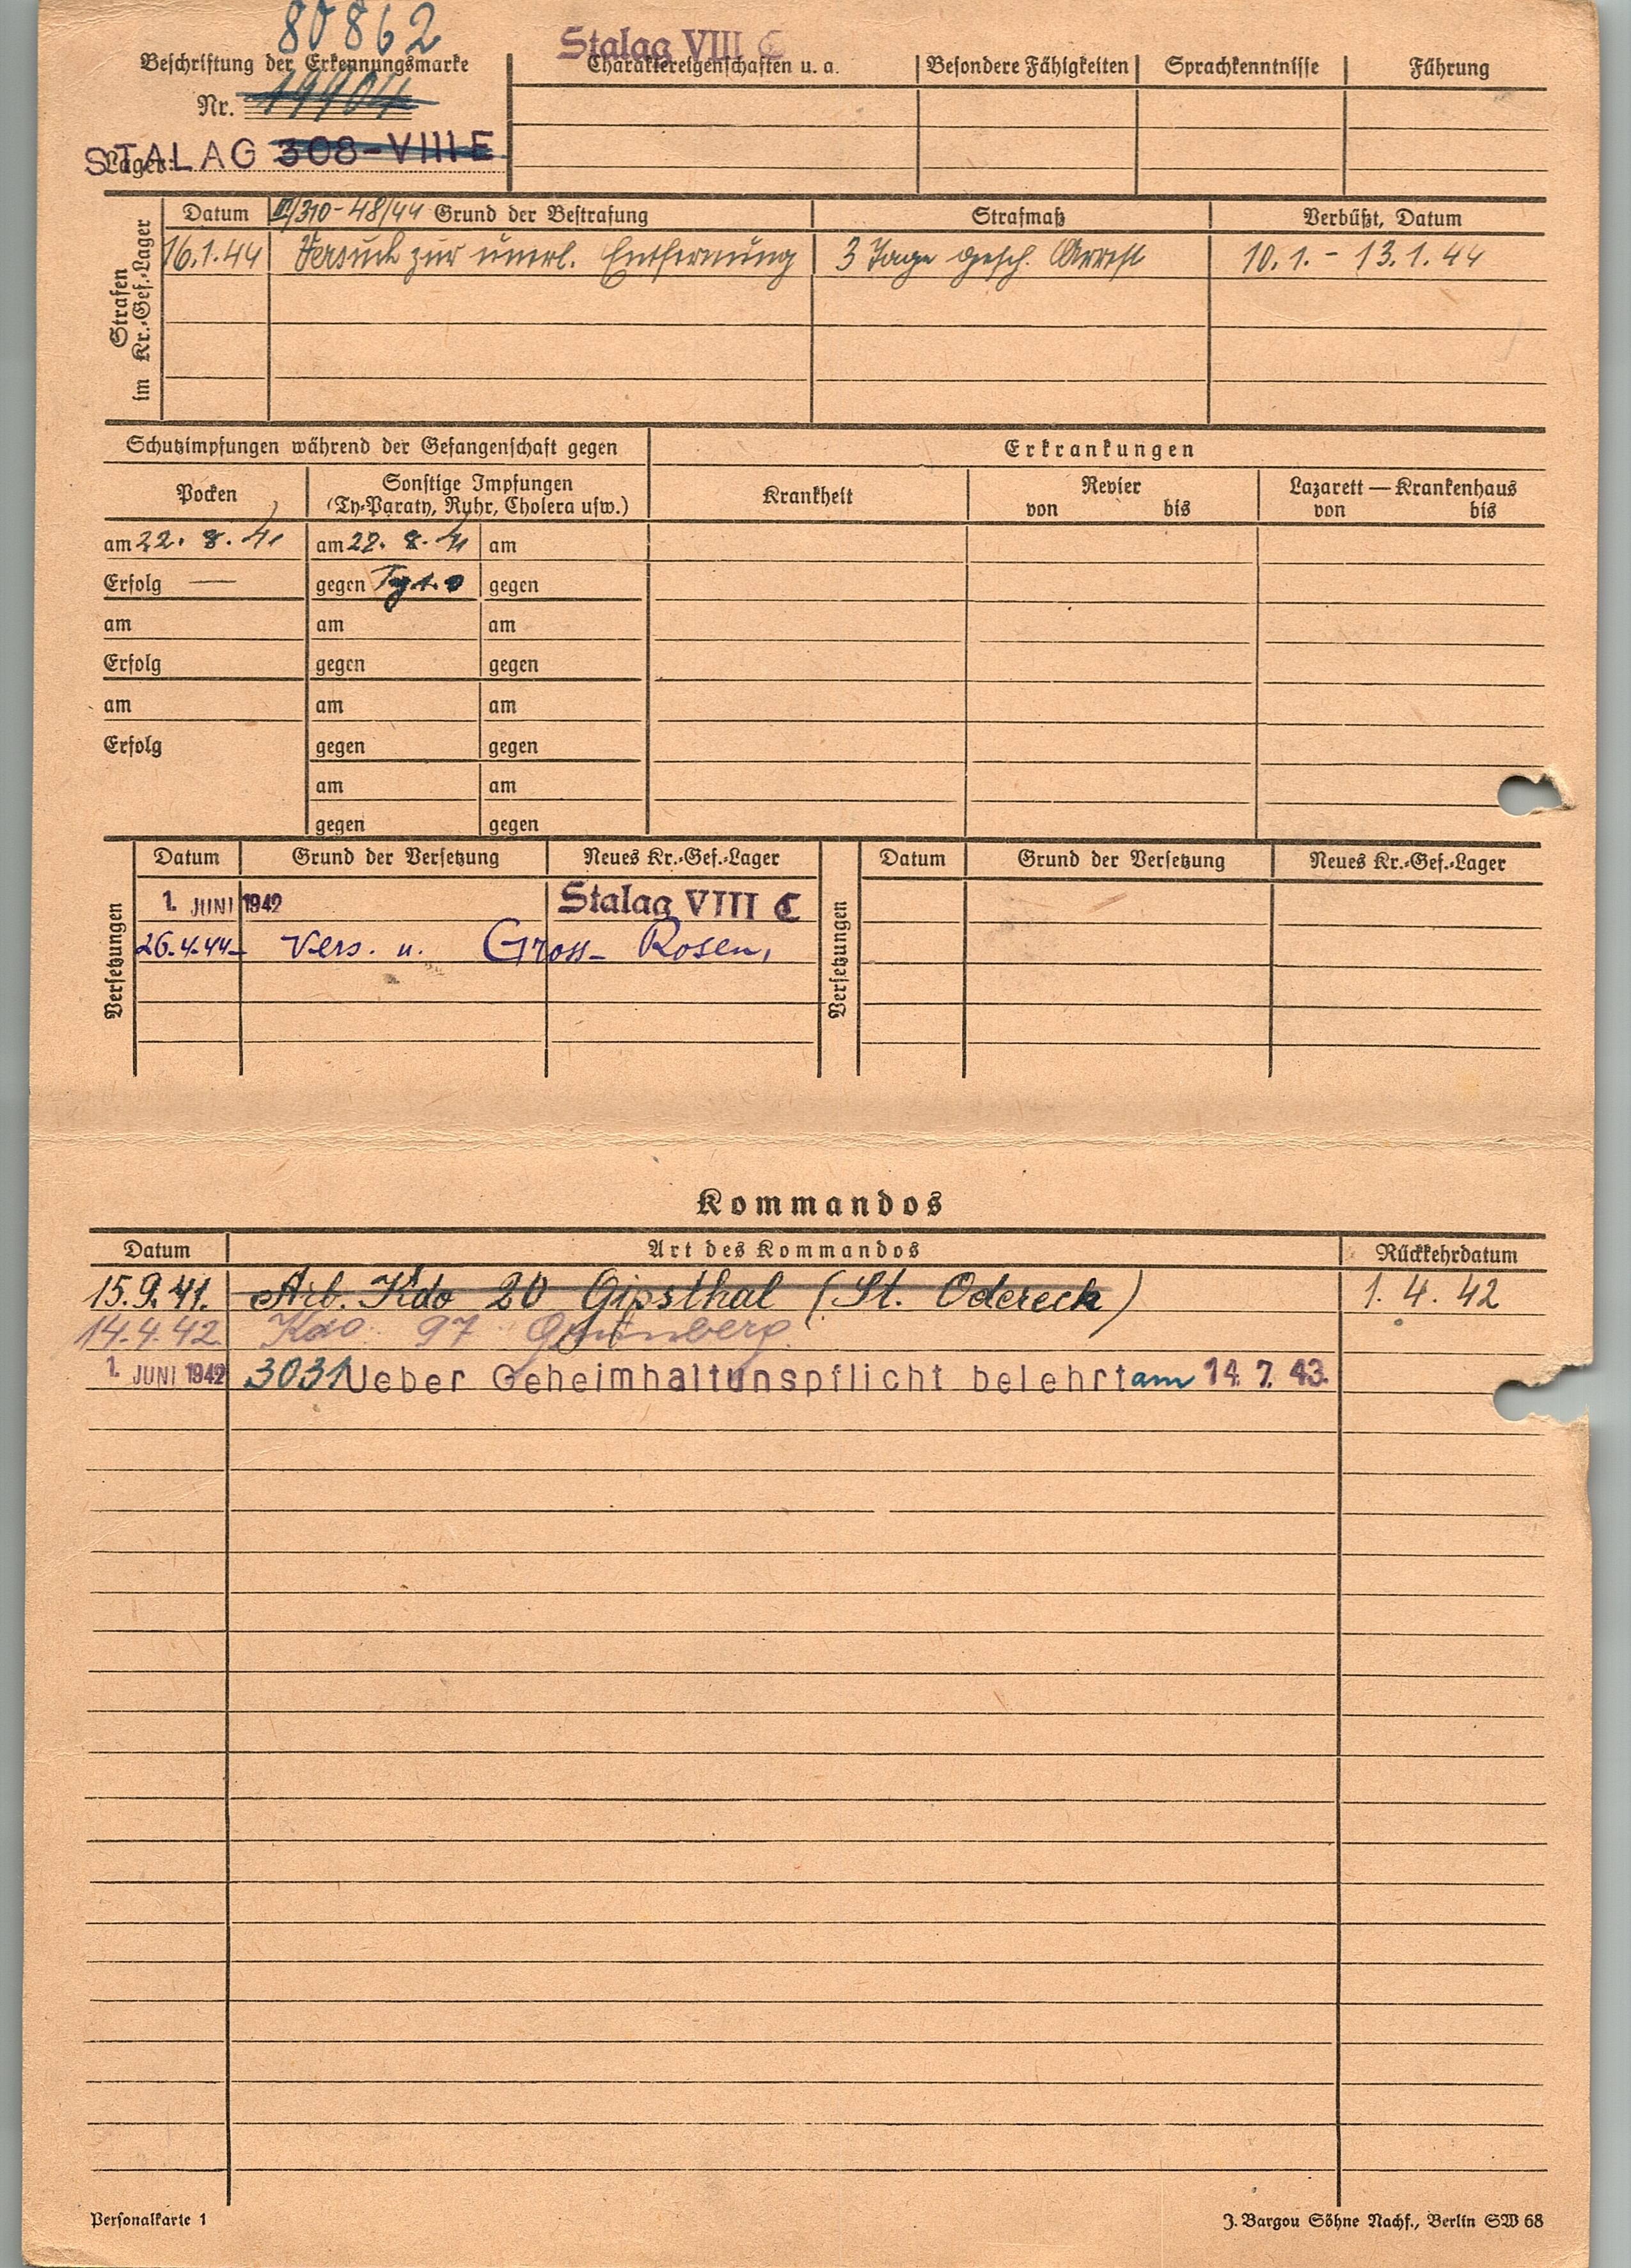 80862
Stalag VIII C
Beschriftung der Erkennungsmarke
Charaktereigenschaften u. a. Besondere Fähigkeiten Sprachkenntnisse Führung
Nr. 19904
Lager: STALAG 308-VIII E
Strafen im Kr.-Gef.-Lager
Datum III/310-48/44 Grund der Bestrafung Strafmaß Verbüßt, Datum
16.1.44 Versuch zur unerl. Entfernung 3 Tage gesch. Arrest 10.1. - 13.1.44
Schutzimpfungen während der Gefangenschaft gegen Erkrankungen
Pocken Sonstige Impfungen Krankheit Revier Lazarett — Krankenhaus
(Ty-Paraty, Ruhr, Cholera usw.) von bis von bis
am 22. 8. 41 am 22. 8. 41 am
Erfolg — gegen gegen
am am am
Erfolg gegen gegen
am am am
Erfolg gegen gegen
am am
gegen gegen
Versetzungen Datum Grund der Versetzung Neues Kr.-Gef.-Lager Versetzungen Datum Grund der Versetzung Neues Kr.-Gef.-Lager
1. JUNI 1942 Stalag VIII C
26.4.44 Vers. n. Gross-Rosen,
Kommandos
Datum Art des Kommandos Rückkehrdatum
15.9.41. Arb. Kdo 20 Gipsthal (St. Odereck) 1. 4. 42
14.4.42 Kdo. 97 Grünberg.
1. JUNI 1942 3031 Ueber Geheimhaltunspflicht belehrt am 14. 7. 43.
Personalkarte 1 J. Bargou Söhne Nachf., Berlin SW 68